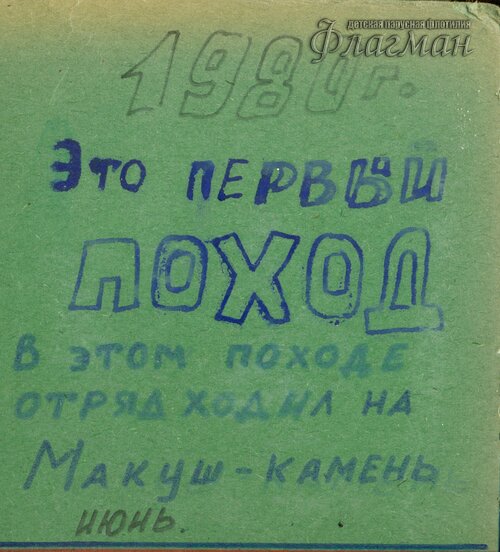 детская парусная флотилия
Флагман
1980г.
Это ПЕРВЫЙ
ПОХОД
В ЭТОМ ПОХОДЕ
ОТРЯД ХОДИЛ НА
МАКУШ-КАМЕНЬ
ИЮНЬ.